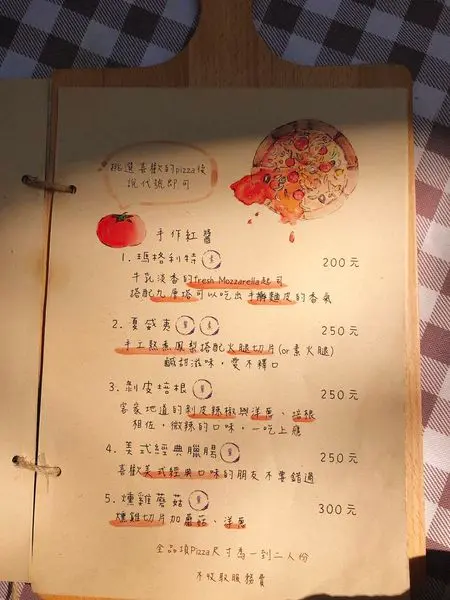 挑選喜歡的pizza後
說代號即可
手作紅醬
1. 瑪格利特 素 200元
牛乳淡香的fresh Mozzarella起司
搭配九層塔可以吃出手擀麵皮的香氣
2. 夏威夷 單 素 250元
手工熬煮鳳梨搭配火腿切片(or素火腿)
鹹甜滋味，愛不釋口
3. 剝皮培根 單 250元
客家地道的剝皮辣椒與洋蔥、培根
相佐，微辣的口味，一吃上癮
4. 美式經典臘腸 單 250元
喜歡美式經典口味的朋友不要錯過
5. 燻雞蘑菇 單 300元
燻雞切片加蘑菇、洋蔥
全品項Pizza尺寸為一到二人份
不收取服務費